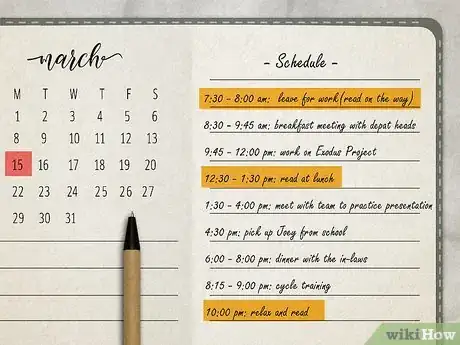 march
M T W T F S
1 2 3 4 5 6
8 9 10 11 12 13
15 16 17 18 19 20
22 23 24 25 26 27
29 30 31
- Schedule -
7:30 - 8:00 am: leave for work(read on the way)
8:30 - 9:45 am: breakfast meeting with depat heads
9:45 - 12:00 pm: work on Exodus Project
12:30 - 1:30 pm: read at lunch
1:30 - 4:00 pm: meet with team to practice presentation
4:30 pm: pick up Joey from school
6:00 - 8:00 pm: dinner with the in-laws
8:15 - 9:00 pm: cycle training
10:00 pm: relax and read
wikiHow